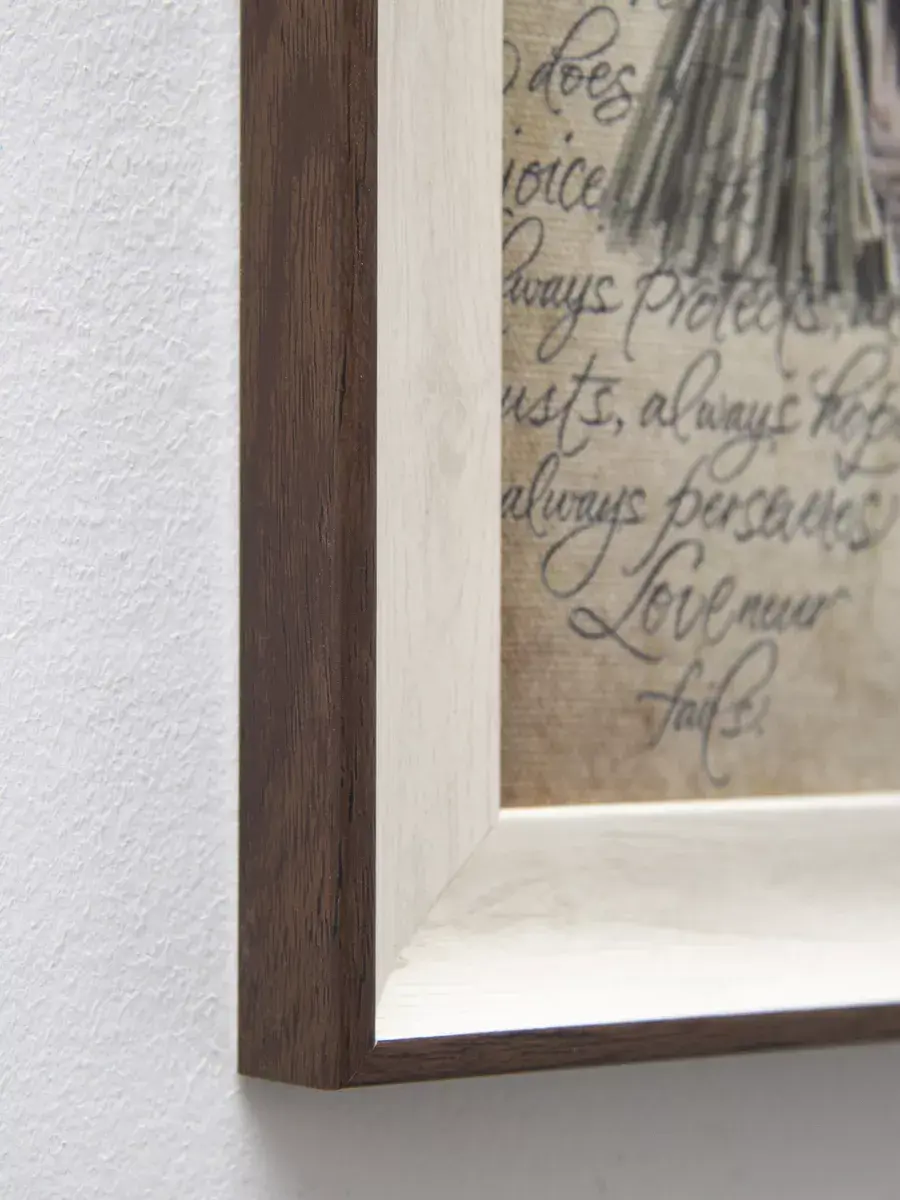 does
joice
lways protects,
usts, always hop
always perseveres
Love never
fails.